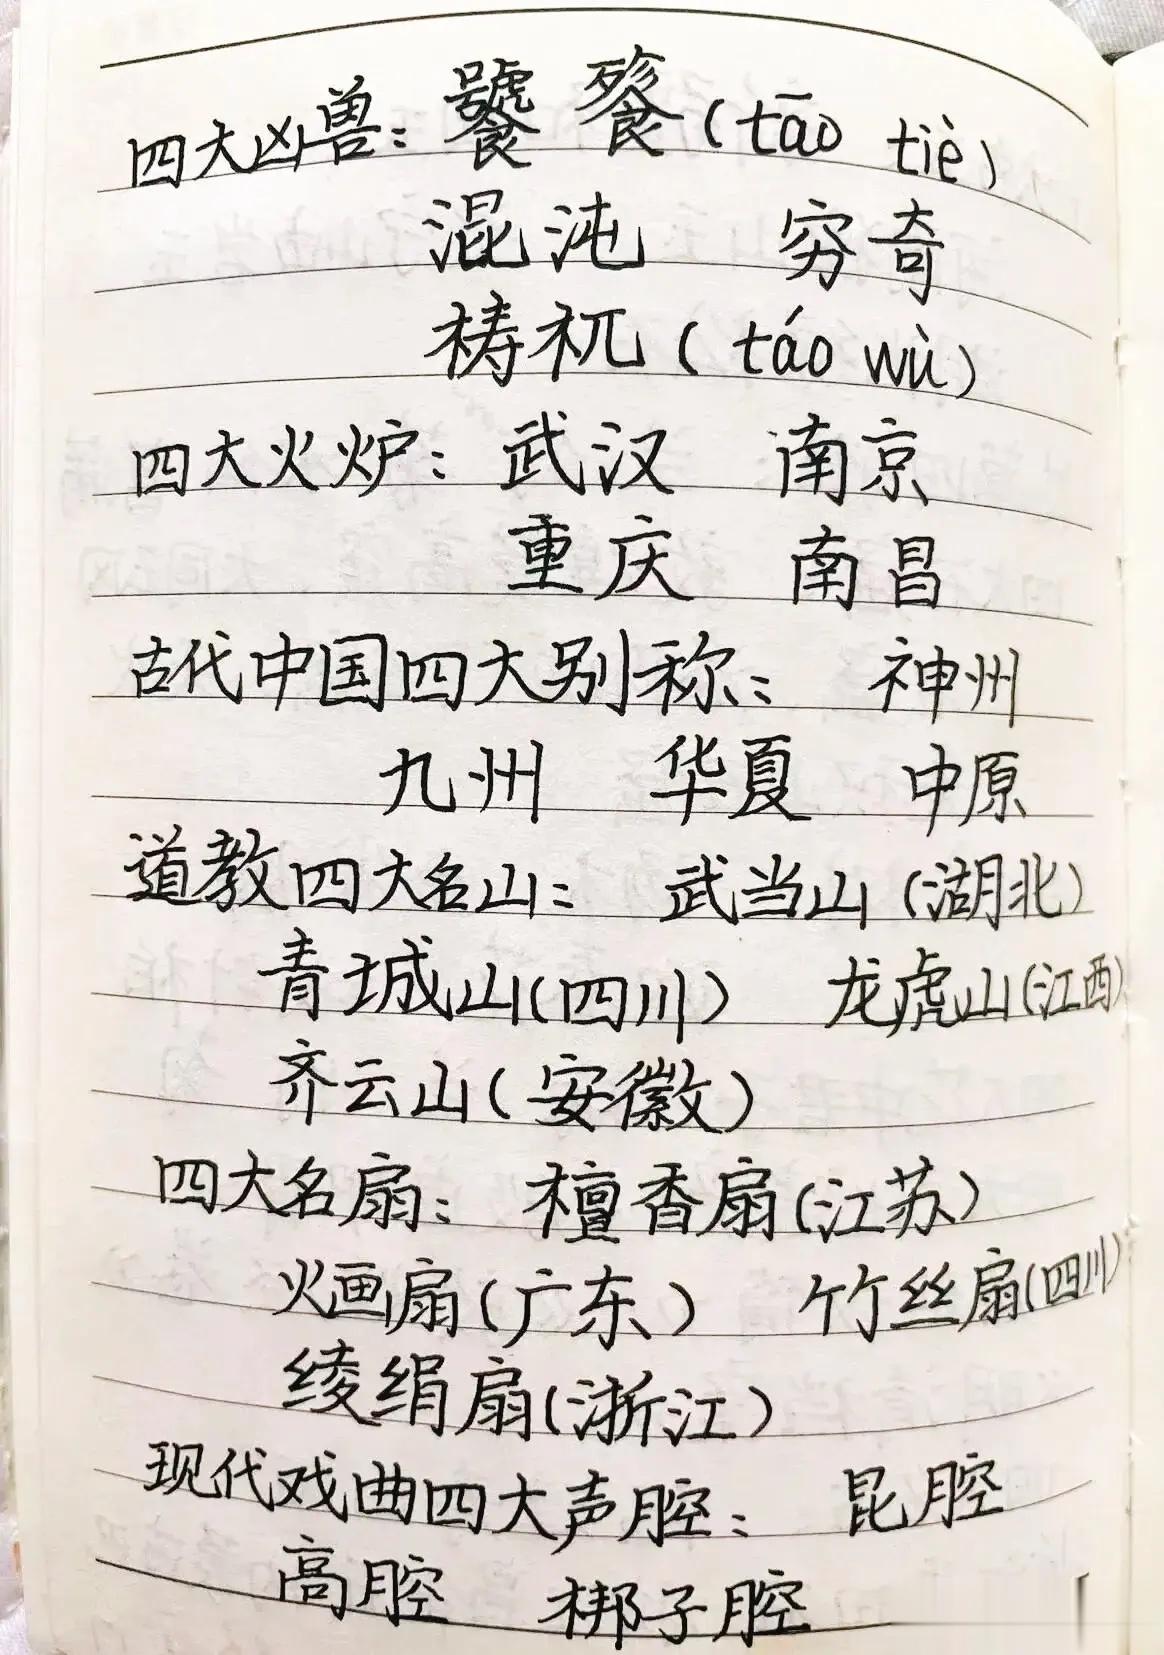 四大凶兽：饕餮（tāo tiè）
混沌 穷奇
梼杌（táo wù）
四大火炉：武汉 南京
重庆 南昌
古代中国四大别称： 神州
九州 华夏 中原
道教四大名山： 武当山（湖北）
青城山（四川） 龙虎山（江西）
齐云山（安徽）
四大名扇： 檀香扇（江苏）
火画扇（广东） 竹丝扇（四川）
绫绢扇（浙江）
现代戏曲四大声腔： 昆腔
高腔 梆子腔